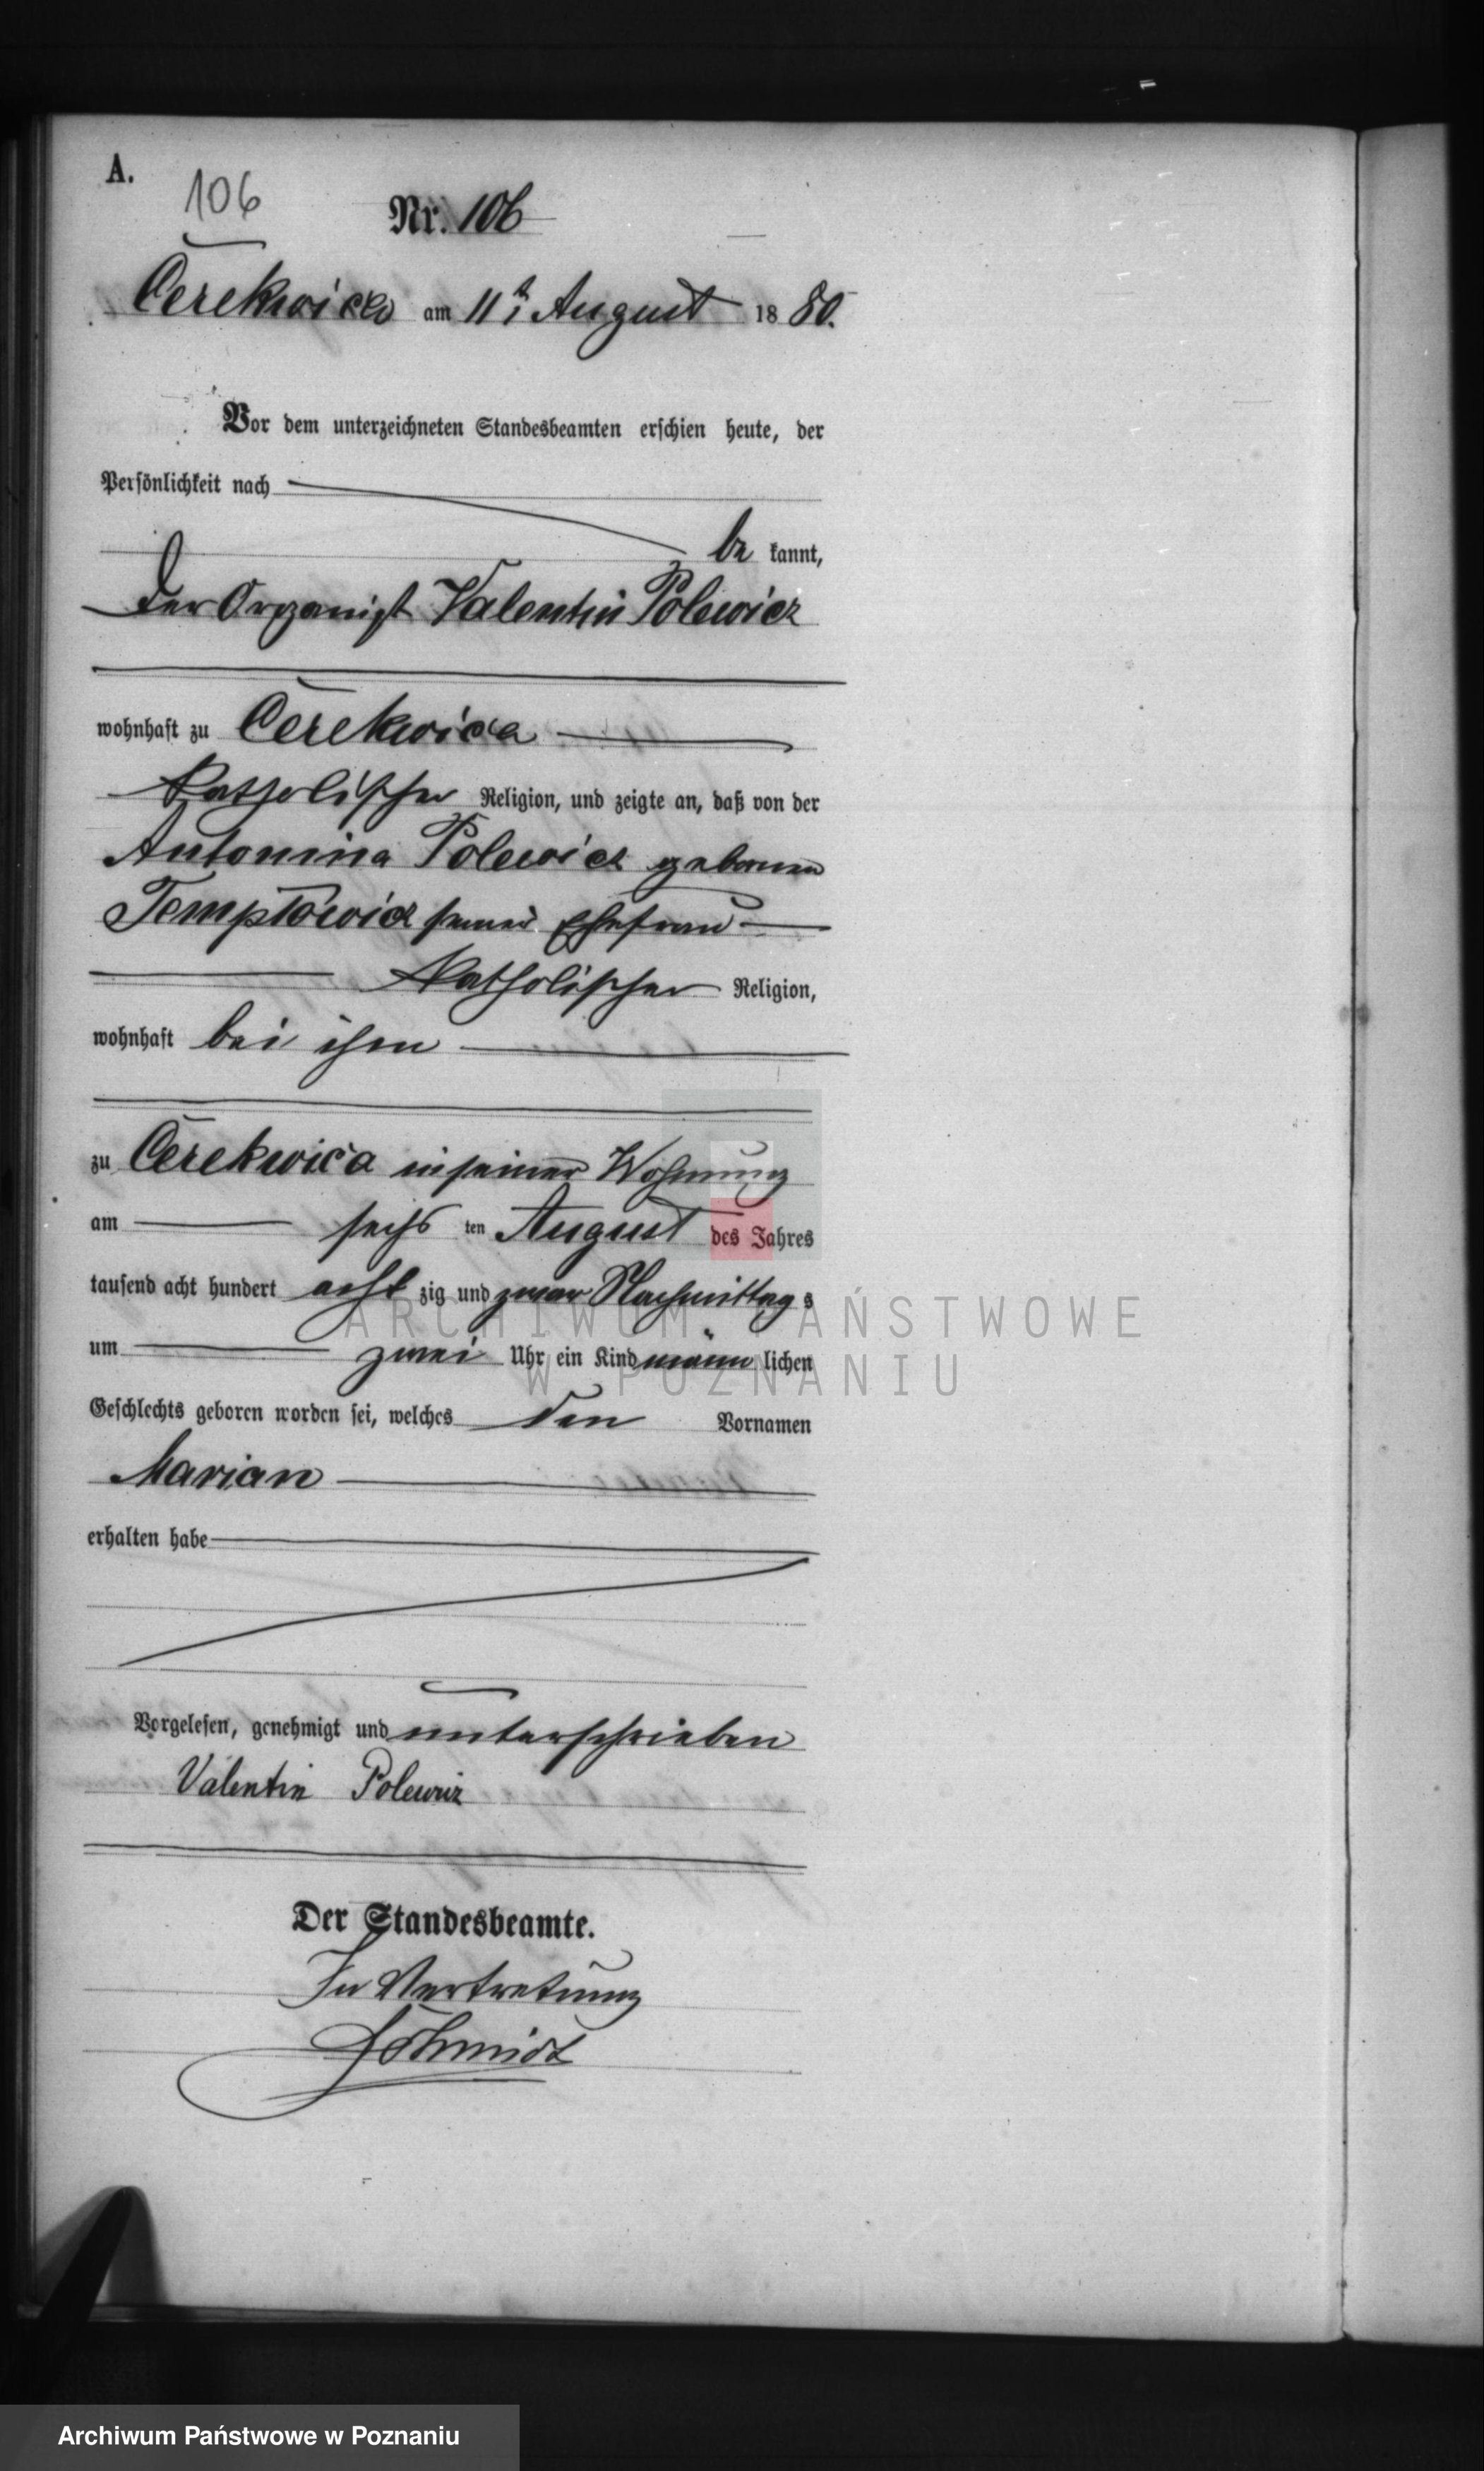 A.
106
Nr. 106
Cerekwica am 11t August 1880.
Vor dem unterzeichneten Standesbeamten erschien heute, der
Persönlichkeit nach
be kannt,
der Organist Valentin Polewicz
wohnhaft zu Cerekwica
katholischer Religion, und zeigte an, daß von der
Antonina Polewicz geborenen
Templowicz seiner Ehefrau
katholischer Religion,
wohnhaft bei ihm
zu Cerekwica in seiner Wohnung
am sechs ten August des Jahres
tausend acht hundert acht zig und zwar Nachmittags
um zwei Uhr ein Kind männlichen
Geschlechts geboren worden sei, welches den Vornamen
Marian
erhalten habe
Vorgelesen, genehmigt und unterschrieben
Valentin Polewicz
Der Standesbeamte.
In Vertretung
Schmidt
ARCHIWUM PAŃSTWOWE
W POZNANIU
Archiwum Państwowe w Poznaniu